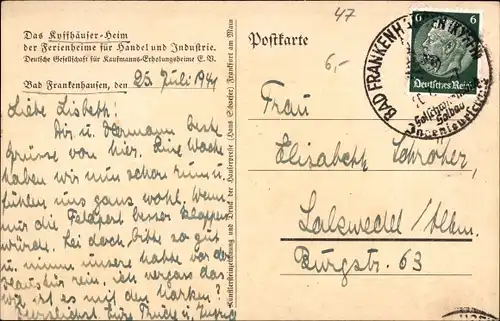 Das Kyffhäuser-Heim
der Ferienheime für Handel und Industrie.
Deutsche Gesellschaft für Kaufmanns-Erholungsheime E.V.
Bad Frankenhausen, den 25. Juli 1941
Liebe Lisbeth!
Dir u. Hermann beste
Grüsse von hier. Eine Woche
haben wir nun schon rum u.
fühlen uns ganz wohl. Wenn
nur die Feldpost besser klappen
würde. Sei doch bitte so gut
u. nimm unsere
Haustür rein, ich vergass das
wie ist es mit den
Herzlichst Eure
Künstlersteinzeichnung und Druck der Hauserpresse (Hans Schaefer) Frankfurt am Main
47
Postkarte
6,-
6 6
Deutsches Reich
BAD FRANKENHAUSEN (KYFFH)
Solbad
Ingenieurschule
Frau
Elisabeth Schröter,
Salzwedel /Altm.
Burgstr. 63